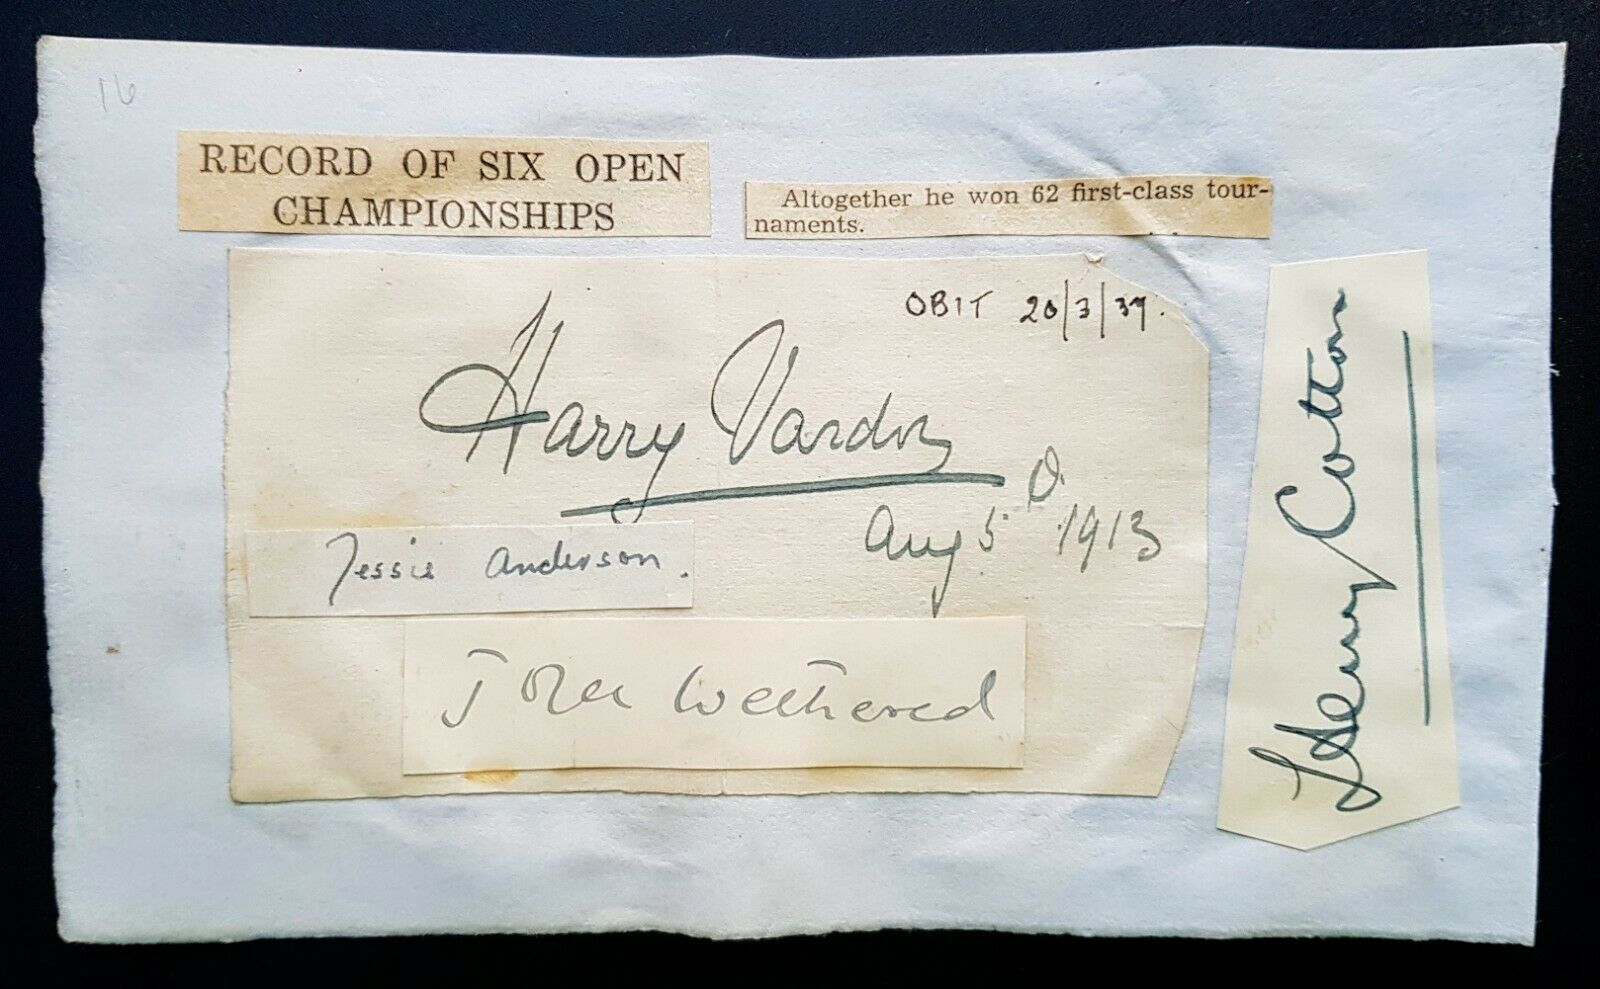 16
RECORD OF SIX OPEN
CHAMPIONSHIPS
Altogether he won 62 first-class tour-
naments.
OBIT 20/3/37.
Harry Vardon
Aug 5 1913
Jessie Anderson.
Joyce Wethered
Henry Cotton